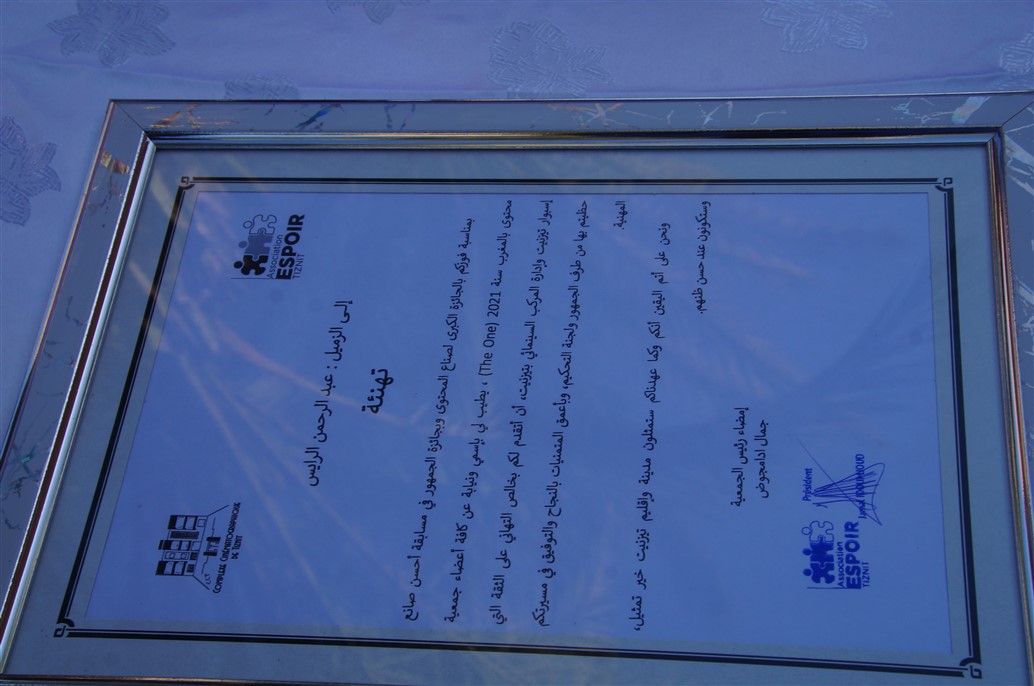 Association
ESPOIR
TIZNIT
COMPLEXE CINEMATOGRAPHIQUE
DE TIZNIT
إلى الزميل : عبد الرحمن الرايس
تهنئة
بمناسبة فوزكم بالجائزة الكبرى لصناع المحتوى وبجائزة الجمهور في مسابقة أحسن صانع
محتوى بالمغرب سنة 2021 (The One) ، يطيب لي بإسمي ونيابة عن كافة أعضاء جمعية
إسبوار تيزنيت وإدارة المركب السينمائي بتيزنيت، أن أتقدم لكم بخالص التهاني على الثقة التي
حظيتم بها من طرف الجمهور ولجنة التحكيم، وبأعمق المتمنيات بالنجاح والتوفيق في مسيرتكم
المهنية.
ونحن على أتم اليقين أنكم وكما عهدناكم ستمثلون مدينة وإقليم تيزنيت خير تمثيل،
وستكونون عند حسن ظنهم.
إمضاء رئيس الجمعية
جمال ادامجوض
Président
Association
ESPOIR
TIZNIT